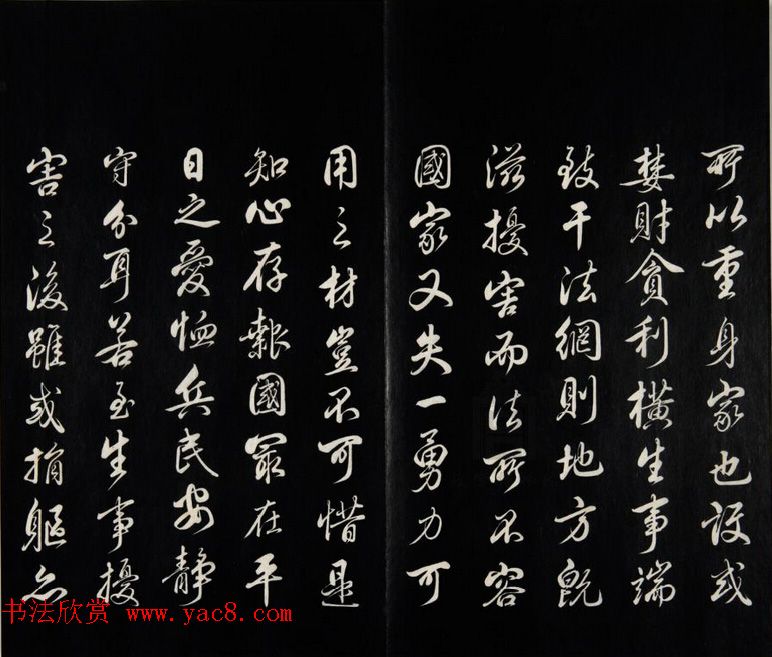 所以重身家也設或
婪財貪利橫生事端
致干法網則地方既
滋擾害而法所不容
國家又失一勇力可
用之材豈不可惜是
知心存報國罪在平
日之愛恤兵民安靜
守分耳若至生事擾
害之後雖或捐軀亦
书法欣赏 www.yac8.com